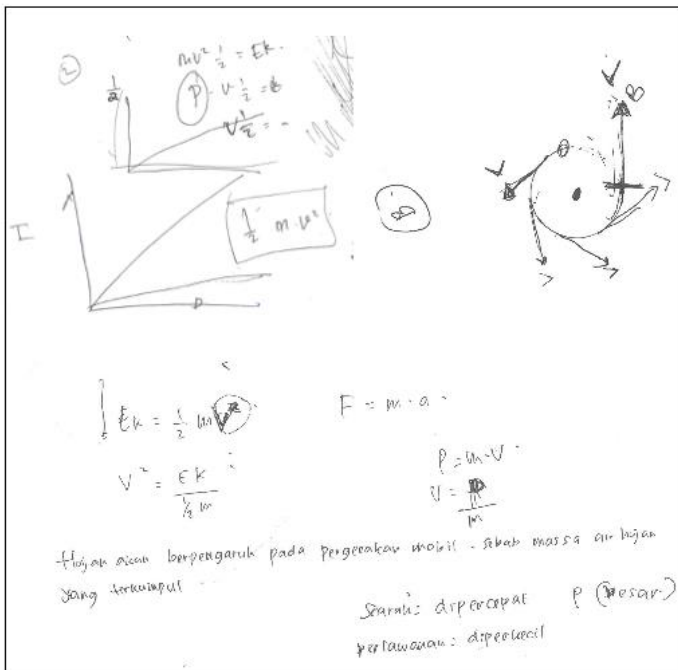 2
mv² ½ = Ek.
½
P - v ½ =
v ½ = -
I
P
½ m v²
B
V
V
B
Ek = ½ m v²
F = m · a
V² = Ek / ½ m
P = m · V
V = P / m
Hujan akan berpengaruh pada pergerakan mobil. Sebab massa air hujan
yang terkumpul
Searah: dipercepat P (besar)
perlawanan: diperkecil